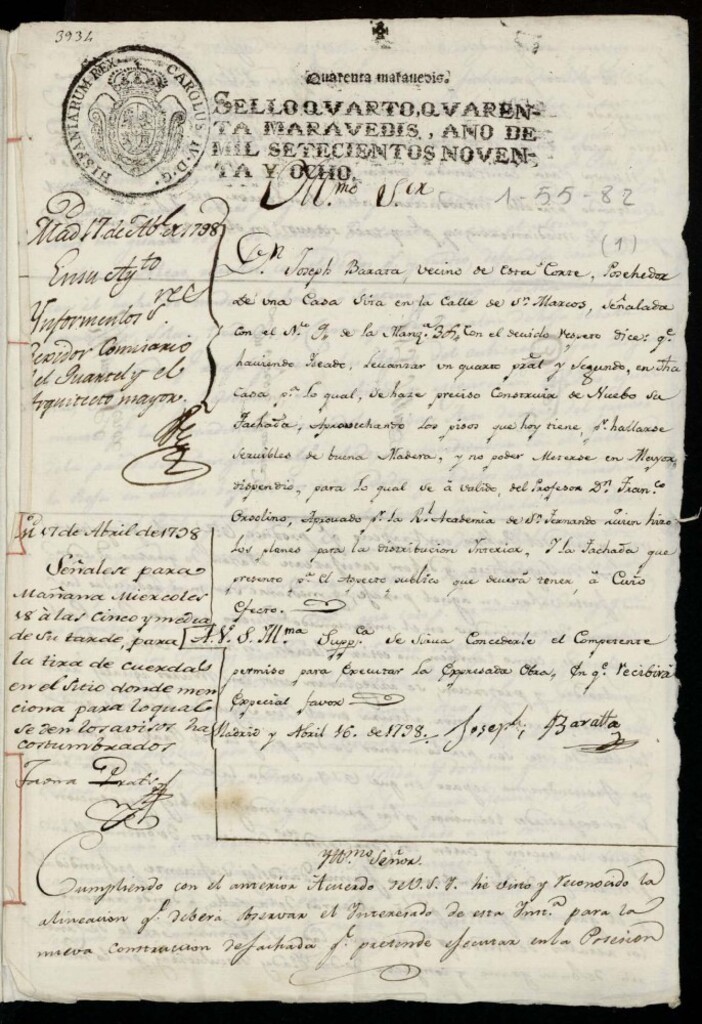 3934
HISPANIARUM REX CAROLUS IV D. G.
Quarenta maravedis.
SELLO QVARTO, QVAREN-
TA MARAVEDIS, AÑO DE
MIL SETECIENTOS NOVEN-
TA Y OCHO.
Yll.mo S.or
1-55-82
(1)
D.n Joseph Barata, vecino de esta Corte, Posehedor
de una Casa Sita en la Calle de S.n Marcos, señalada
con el N.º 9. de la Manz.ª 36, con el devido respeto dice: q.e
haviendo Ideado, Levantar un quarto pral y Segundo, en dha
Casa p.a lo qual, se haze preciso Construir de Nuebo su
Fachada, Aprovechando los pisos que hoy tiene, p.r hallarse
servibles de buena Madera, y no poder Meterse en Mayor
dispendio, para lo qual se à valido, del Profesor D.n Fran.co
Orsolino, Aprovado p.r la R.l Academia de S.n Fernando quien hizo
los planes para la distribucion Interior, Y la Fachada que
presento p.r el Aspecto publico que deverá tener, à Cuio
Efecto.
A. V. S. Yll.ma Supp.ca se sirva Concederle el Competente
permiso para Executar la Expresada Obra, En q.e recibirá
Especial favor
Madrid y Abril 16. de 1798. Joseph Baratta
Mad 17 de Abl de 1798
En su Ay.to
Ynformen los S.res
Rexidor Comisario
del Quartel y el
Arquitecto mayor.
M.d 17 de Abril de 1798
Señalese para
Mañana Miercoles
18 à las cinco y media
de su tarde, para
la tira de cuerdas
en el sitio donde men
ciona para lo qual
se den los avisos ha
costumbrados
Prats
Yll.mo Señor.
Cumpliendo con el anterior Acuerdo de V. S. Y. he visto y reconocido la
alineacion q.e debera observar el Interesado de esta Inst.a para la
nueva construccion de fachada q.e pretende ejecutar en la Posesion